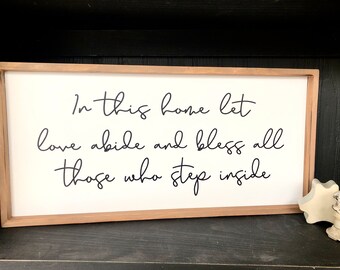 In this home let
love abide and bless all
those who step inside